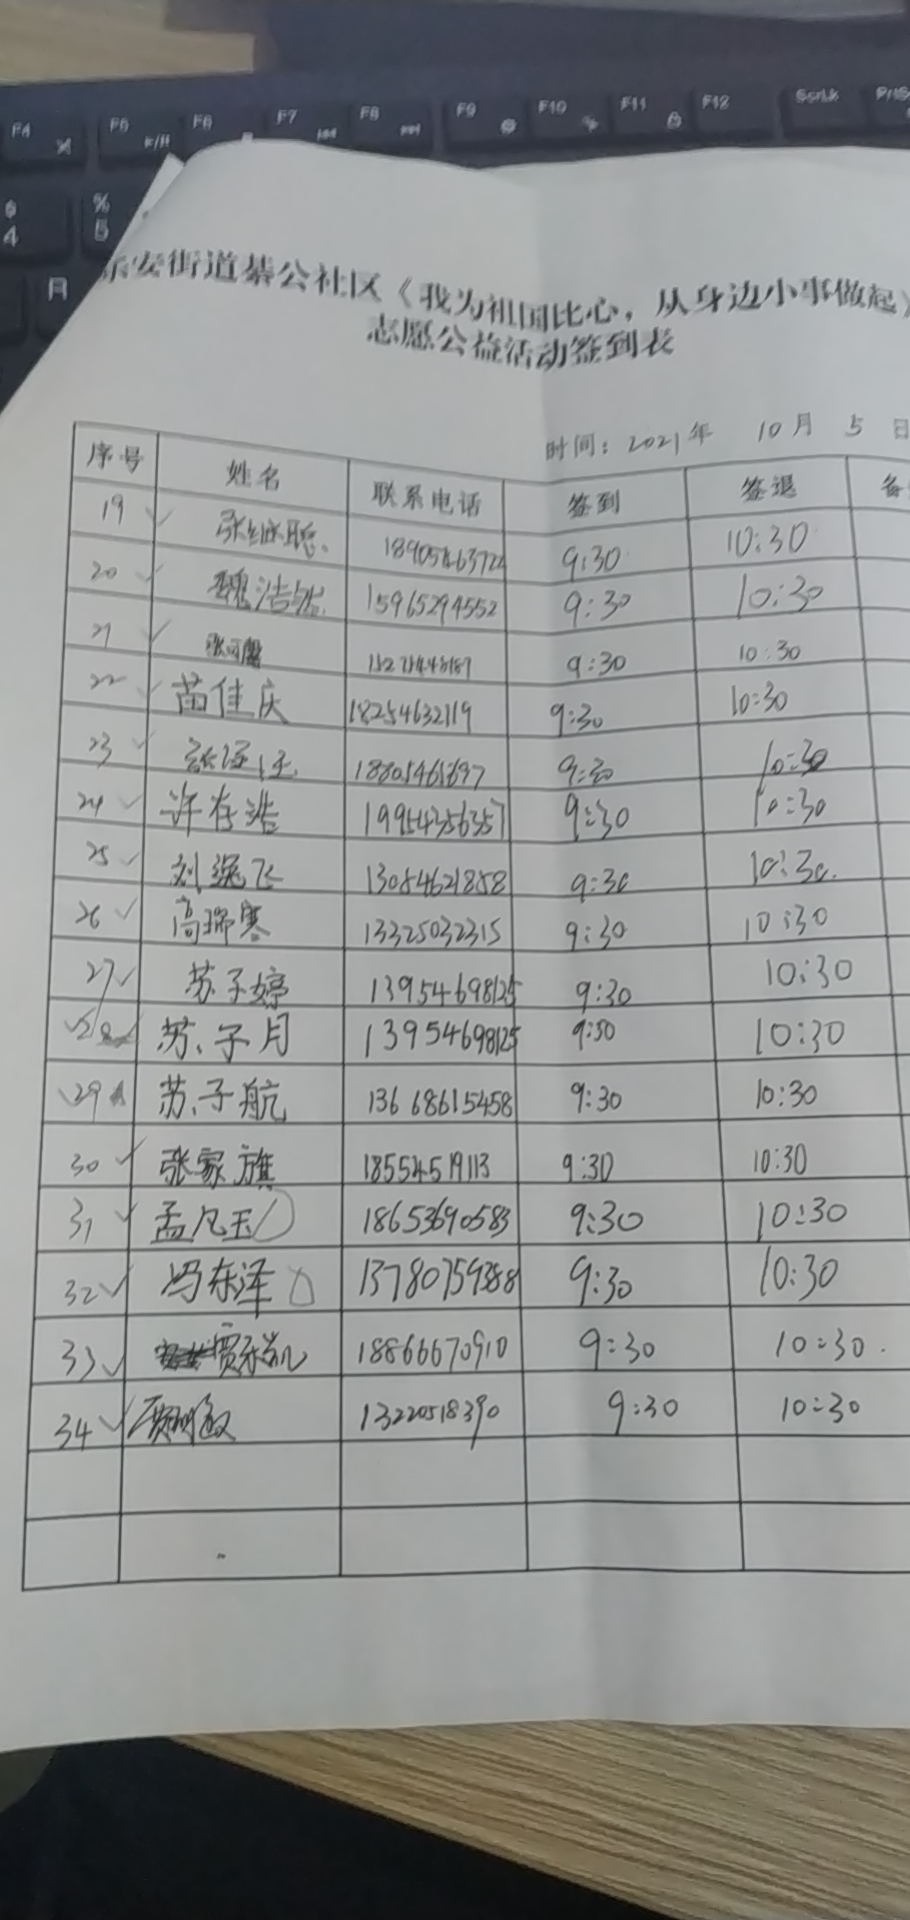 安街道綦公社区《我为祖国比心，从身边小事做起》
志愿公益活动签到表
时间：2021年 10月 5日
序号 姓名 联系电话 签到 签退 备
19 ✓ 张继聪 9:30 10:30
20 ✓ 魏浩 15965294552 9:30 10:30
21 ✓ 9:30 10:30
22 ✓ 苗佳庆 18254632119 9:30 10:30
23 ✓ 9:30 10:30
24 ✓ 许存浩 19954356357 9:30 10:30
25 ✓ 刘逸飞 13054621858 9:30 10:30
26 ✓ 高瑞寒 13325032315 9:30 10:30
27 ✓ 苏子婷 13954698125 9:30 10:30
✓ 28 苏子月 13954698125 9:30 10:30
✓ 29 苏子航 13668615458 9:30 10:30
30 ✓ 张家旗 18554519113 9:30 10:30
31 ✓ 孟凡玉 18653690583 9:30 10:30
32 ✓ 冯东泽 13780759388 9:30 10:30
33 ✓ 18866670910 9:30 10:30
34 ✓ 13220518390 9:30 10:30
F4 F5 F6 F7 F8 F9 F10 F11 F12 ScrLk
$ 4 % 5
R